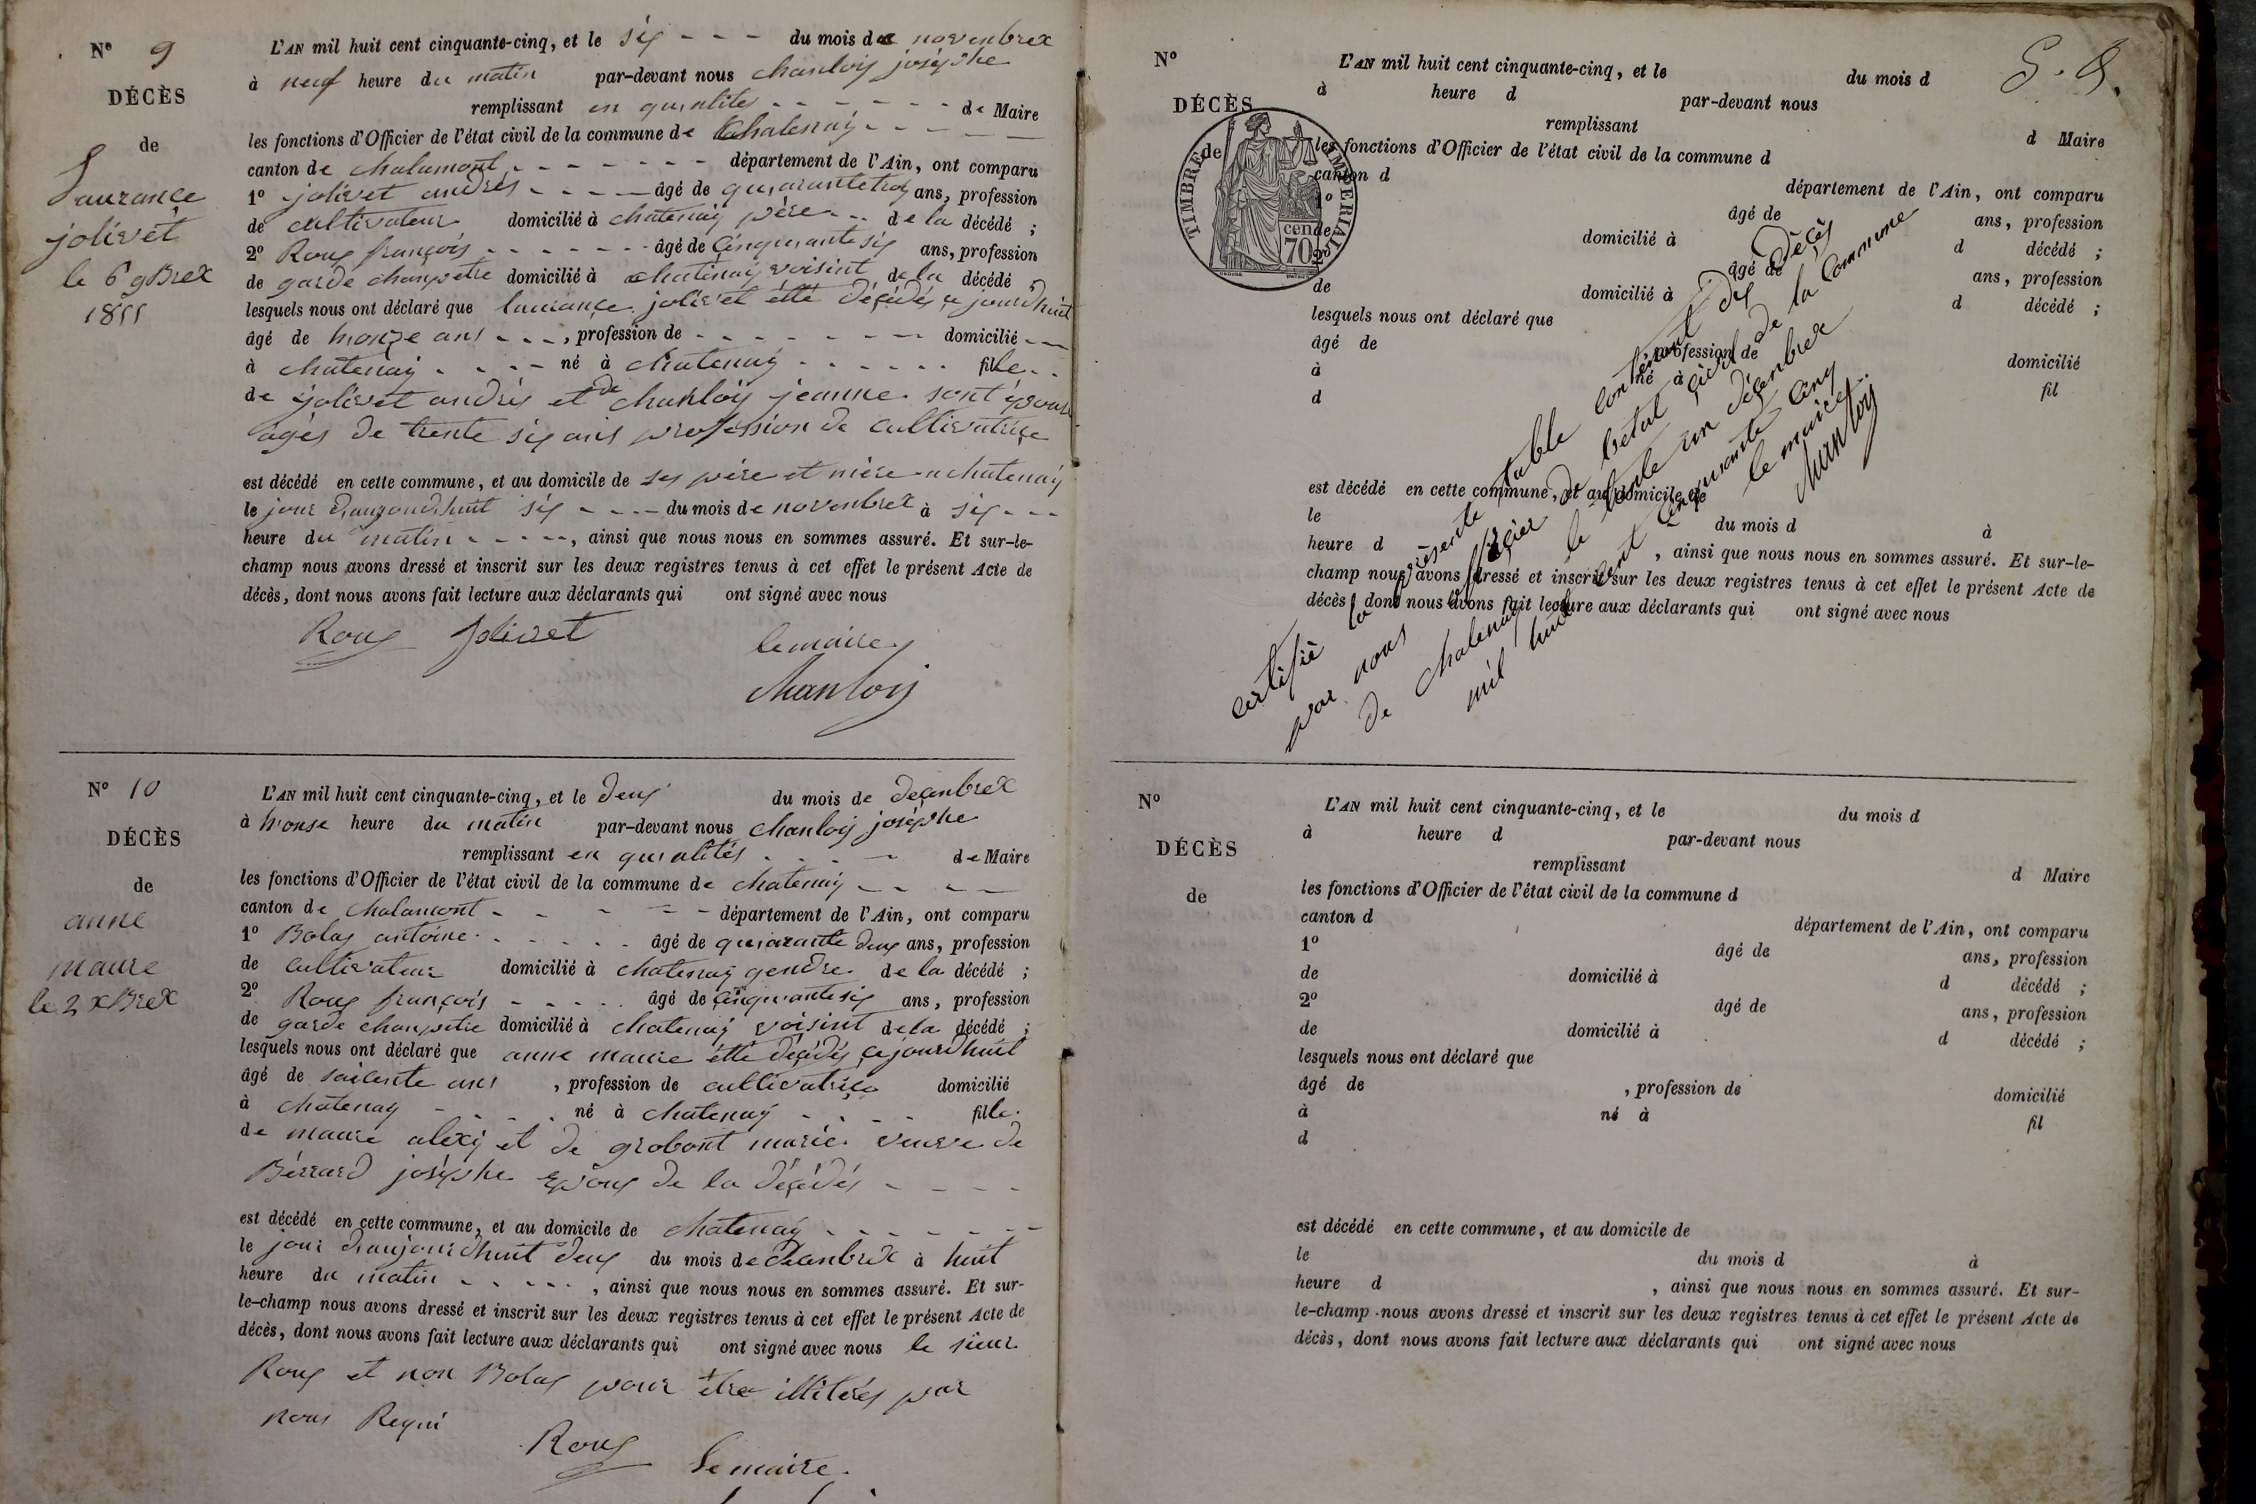 N° 9
DÉCÈS
de
Laurance
jolivet
le 6 9Brex
1855
L'AN mil huit cent cinquante-cinq, et le six - - - du mois de novenbrex
à neuf heure du matin par-devant nous chanloij joséphe
remplissant en qualites - - - - - - - de Maire
les fonctions d'Officier de l'état civil de la commune de Chatenaÿ - - - - -
canton de chalamont - - - - - - - département de l'Ain, ont comparu
1° jolivet andrés - - - - âgé de quarantetroy ans, profession
de cultivateur domicilié à chatenaÿ père - - de la décédé ;
2° Roux françois - - - - - - âgé de cinquantesix ans, profession
de garde chanpetre domicilié à chatenaÿ voisint de la décédé ;
lesquels nous ont déclaré que laurance jolivet étté décédés ce jourdhuit
âgé de honze ans - - - , profession de - - - - - - - - domicilié - -
à chatenaÿ - - - - né à chatenaÿ - - - - - - fille - -
de jolivet andrés et de chanloij jeanne sont épouse
agés de trente six ans profession de cultivatrice
est décédé en cette commune, et au domicile de ses père et mère a chatenaÿ
le jour daujourdhuit six - - - - du mois de novenbrex à six - - -
heure du matin - - - - -, ainsi que nous nous en sommes assuré. Et sur-le-
champ nous avons dressé et inscrit sur les deux registres tenus à cet effet le présent Acte de
décès, dont nous avons fait lecture aux déclarants qui ont signé avec nous
Roux Jolivet lemaire
Chanloij
N° 10
DÉCÈS
de
anne
maure
le 2 xBrex
L'AN mil huit cent cinquante-cinq, et le deux du mois de decenbrex
à honse heure du matin par-devant nous chanloij joséphe
remplissant en qualités - - - - de Maire
les fonctions d'Officier de l'état civil de la commune de chatenaÿ - - - -
canton de chalamont - - - - - - département de l'Ain, ont comparu
1° Bolas antoine - - - - - - âgé de quarante deux ans, profession
de cultivateur domicilié à chatenaÿ gendre de la décédé ;
2° Roux françois - - - - - âgé de cinquantesix ans, profession
de garde chanpetre domicilié à chatenaÿ voisint de la décédé ;
lesquels nous ont déclaré que anne maure étté décédés cejourdhuit
âgé de soicente ans , profession de cultivatrice domicilié
à chatenay - - - - né à chatenaÿ - - - - fille
de maure alexij et de grobont marie veuve de
Bérrard joséphe epoux de la décédés - - - -
est décédé en cette commune, et au domicile de chatenaÿ - - - - - - -
le jour daujourdhuit deux du mois de decenbrex à huit
heure du matin - - - - - , ainsi que nous nous en sommes assuré. Et sur-
le-champ nous avons dressé et inscrit sur les deux registres tenus à cet effet le présent Acte de
décès, dont nous avons fait lecture aux déclarants qui ont signé avec nous le sieur
Roux et non Bolas pour être illitérés par
nous Requi
Roux
Le maire
N°
DÉCÈS
de
TIMBRE IMPERIAL
70
L'AN mil huit cent cinquante-cinq, et le du mois d
à heure d par-devant nous
remplissant d Maire
les fonctions d'Officier de l'état civil de la commune d
canton d département de l'Ain, ont comparu
1° âgé de ans, profession
de domicilié à d décédé ;
2° âgé de ans, profession
de domicilié à d décédé ;
lesquels nous ont déclaré que
âgé de , profession de domicilié
à né à fil
d
est décédé en cette commune, et au domicile de
le du mois d à
heure d , ainsi que nous nous en sommes assuré. Et sur-le-
champ nous avons dressé et inscrit sur les deux registres tenus à cet effet le présent Acte de
décès, dont nous avons fait lecture aux déclarants qui ont signé avec nous
certifié la présente table contenent dix décès
par nous officier de letat civil de la Commune
de chatenaÿ le trente un décenbrex
mil huit cent cinquante cinq
le maire
Chanloij
N°
DÉCÈS
de
L'AN mil huit cent cinquante-cinq, et le du mois d
à heure d par-devant nous
remplissant d Maire
les fonctions d'Officier de l'état civil de la commune d
canton d département de l'Ain, ont comparu
1° âgé de ans, profession
de domicilié à d décédé ;
2° âgé de ans, profession
de domicilié à d décédé ;
lesquels nous ont déclaré que
âgé de , profession de domicilié
à né à fil
d
est décédé en cette commune, et au domicile de
le du mois d à
heure d , ainsi que nous nous en sommes assuré. Et sur-
le-champ nous avons dressé et inscrit sur les deux registres tenus à cet effet le présent Acte de
décès, dont nous avons fait lecture aux déclarants qui ont signé avec nous